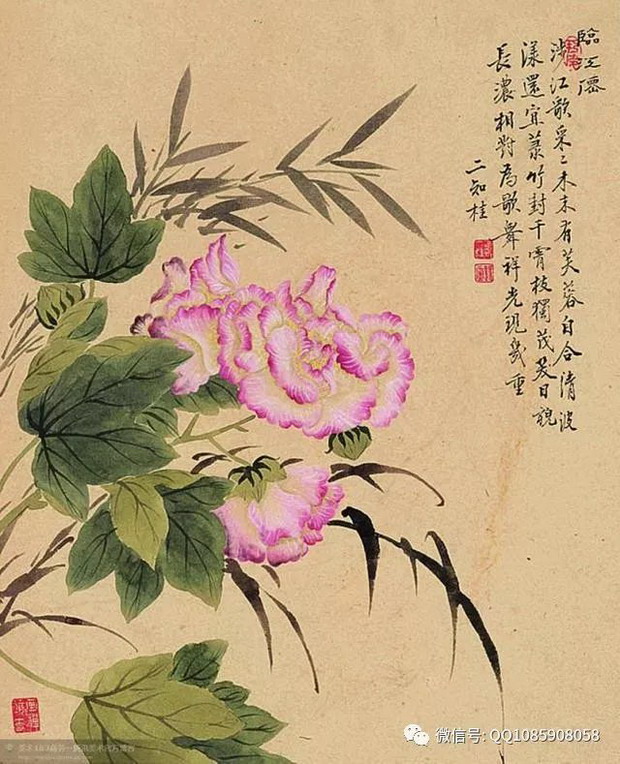 臨江僊
涉江歌采〻木末有芙蓉自合清波
漾還宜菉竹封干霄枝獨茂日靚
長濃相對為歌舞祥光現幾重
二知桂
微信号: QQ1085908058